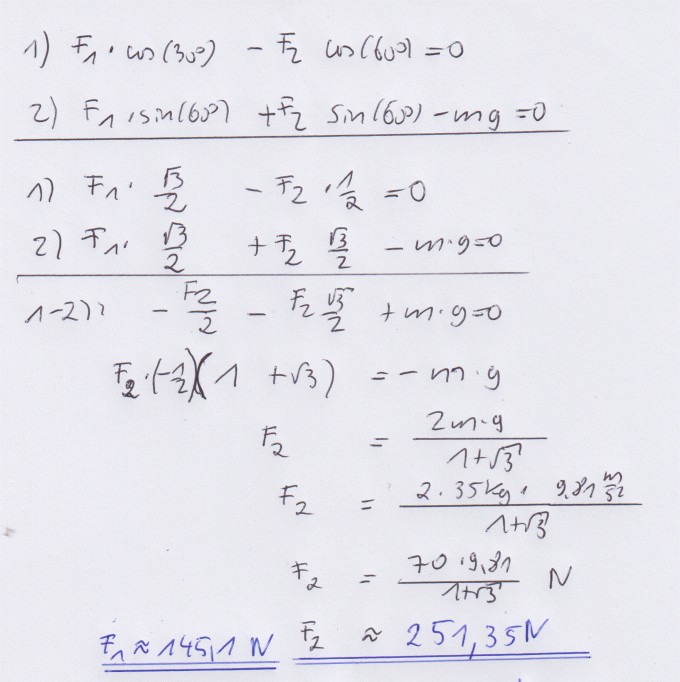 1) F₁ · cos(30°) - F₂ cos(60°) = 0
2) F₁ · sin(60°) + F₂ sin(60°) - mg = 0
1) F₁ · √3/2 - F₂ · 1/2 = 0
2) F₁ · √3/2 + F₂ √3/2 - m·g = 0
1-2): - F₂/2 - F₂ √3/2 + m·g = 0
F₂ · (-1/2)(1 + √3) = - m·g
F₂ = 2m·g / (1+√3)
F₂ = 2·35kg · 9,81 m/s² / (1+√3)
F₂ = 70·9,81 / (1+√3) N
F₁ ≈ 145,1 N F₂ ≈ 251,35N